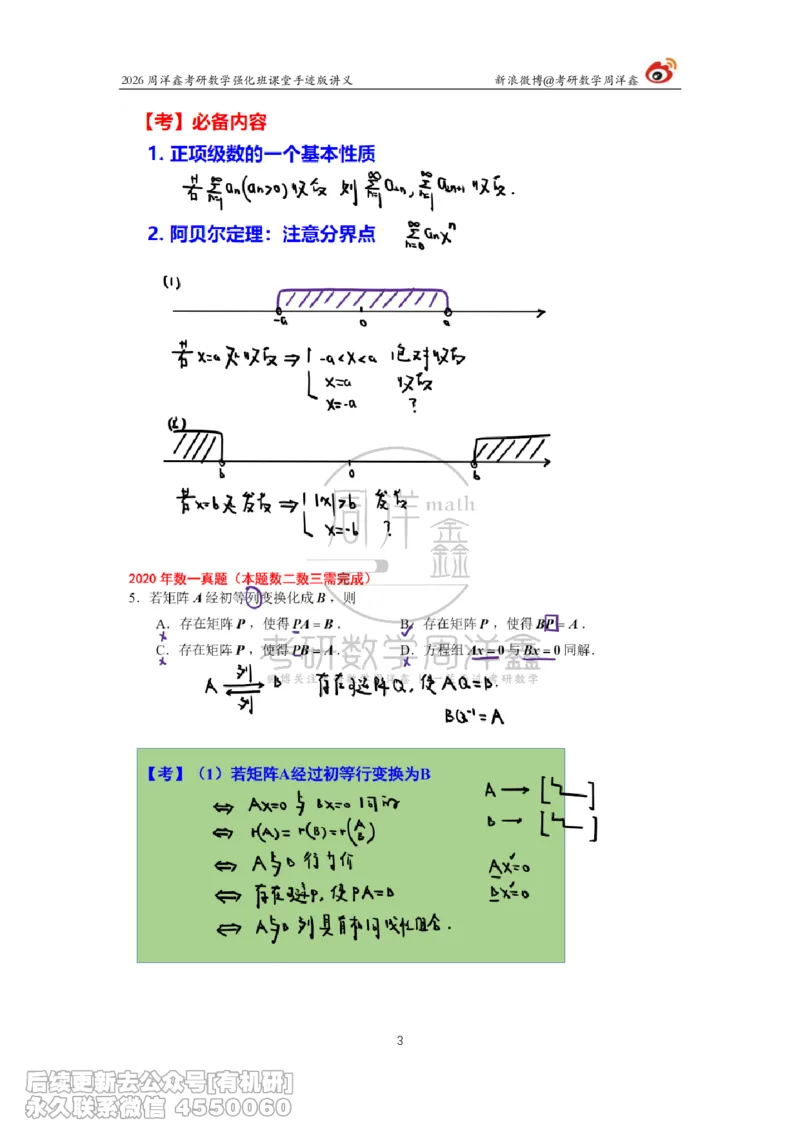 2026 周洋鑫考研数学强化班课堂手迹版讲义 新浪微博@考研数学周洋鑫
【考】必备内容
1. 正项级数的一个基本性质
若 ∑(n=1→∞) an (an>0) 收敛 则 ∑(n=1→∞) a2n, ∑(n=1→∞) a2n+1 收敛.
2. 阿贝尔定理：注意分界点 ∑(n=0→∞) anxⁿ
(1)
-a 0 a
若 x=a 处收敛 ⇒ -a<x<a 绝对收敛
x=a 收敛
x=-a ?
(2)
b 0 b
若x=b处发散 ⇒ |x|>b 发散
x=-b ?
周洋鑫 math
2020 年数一真题（本题数二数三需完成）
5．若矩阵 A 经初等列变换化成 B，则
A．存在矩阵 P，使得 PA = B． B．存在矩阵 P，使得 BP = A．
C．存在矩阵 P，使得 PB = A． D．方程组 Ax = 0 与 Bx = 0 同解．
考研数学周洋鑫
A ⇄ B 列 列 存在可逆阵Q, 使AQ=B.
BQ⁻¹=A
【考】（1）若矩阵A经过初等行变换为B
⇔ Ax=0 与 Bx=0 同解
⇔ r(A)= r(B)=r(A B)
⇔ A与B 行等价
⇔ 存在可逆P, 使PA=B
⇔ A与B 列具有相同线性组合.
A →
B →
Ax=0
Bx=0
3
后续更新去公众号[有机研]
永久联系微信 4550060